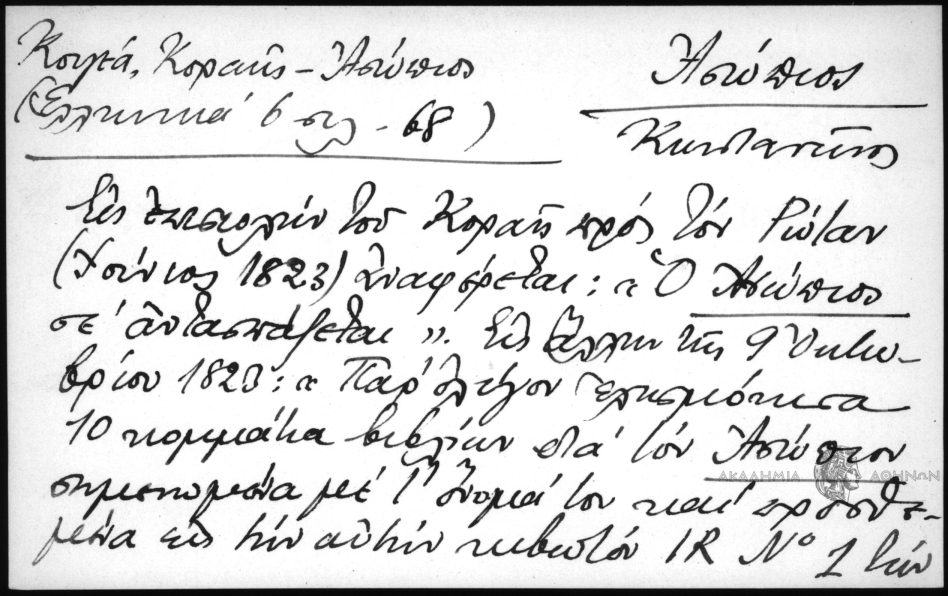 Κουγέα, Κοραῆς - Ἀσώπιος
(Ἑλληνικά 6 σελ. 68)
Ἀσώπιος
Κωνσταντῖνος
Εἰς ἐπιστολήν τοῦ Κοραῆ πρός τόν Ρώταν
(Ἰούνιος 1823) ἀναφέρεται: « Ὁ Ἀσώπιος
σέ ἀντασπάζεται ». Εἰς ἄλλην τῆς 9 Ὀκτω-
βρίου 1823: « Παρ' ὀλίγον ἐλησμόνησα
10 κομμάτια βιβλίων διά τόν Ἀσώπιον
σημειωμένα μέ τ' ὄνομά του καί προσθε-
μένα εἰς τήν αὐτήν κιβωτόν IR Nº 1 τῶν
ΑΚΑΔΗΜΙΑ ΑΘΗΝΩΝ